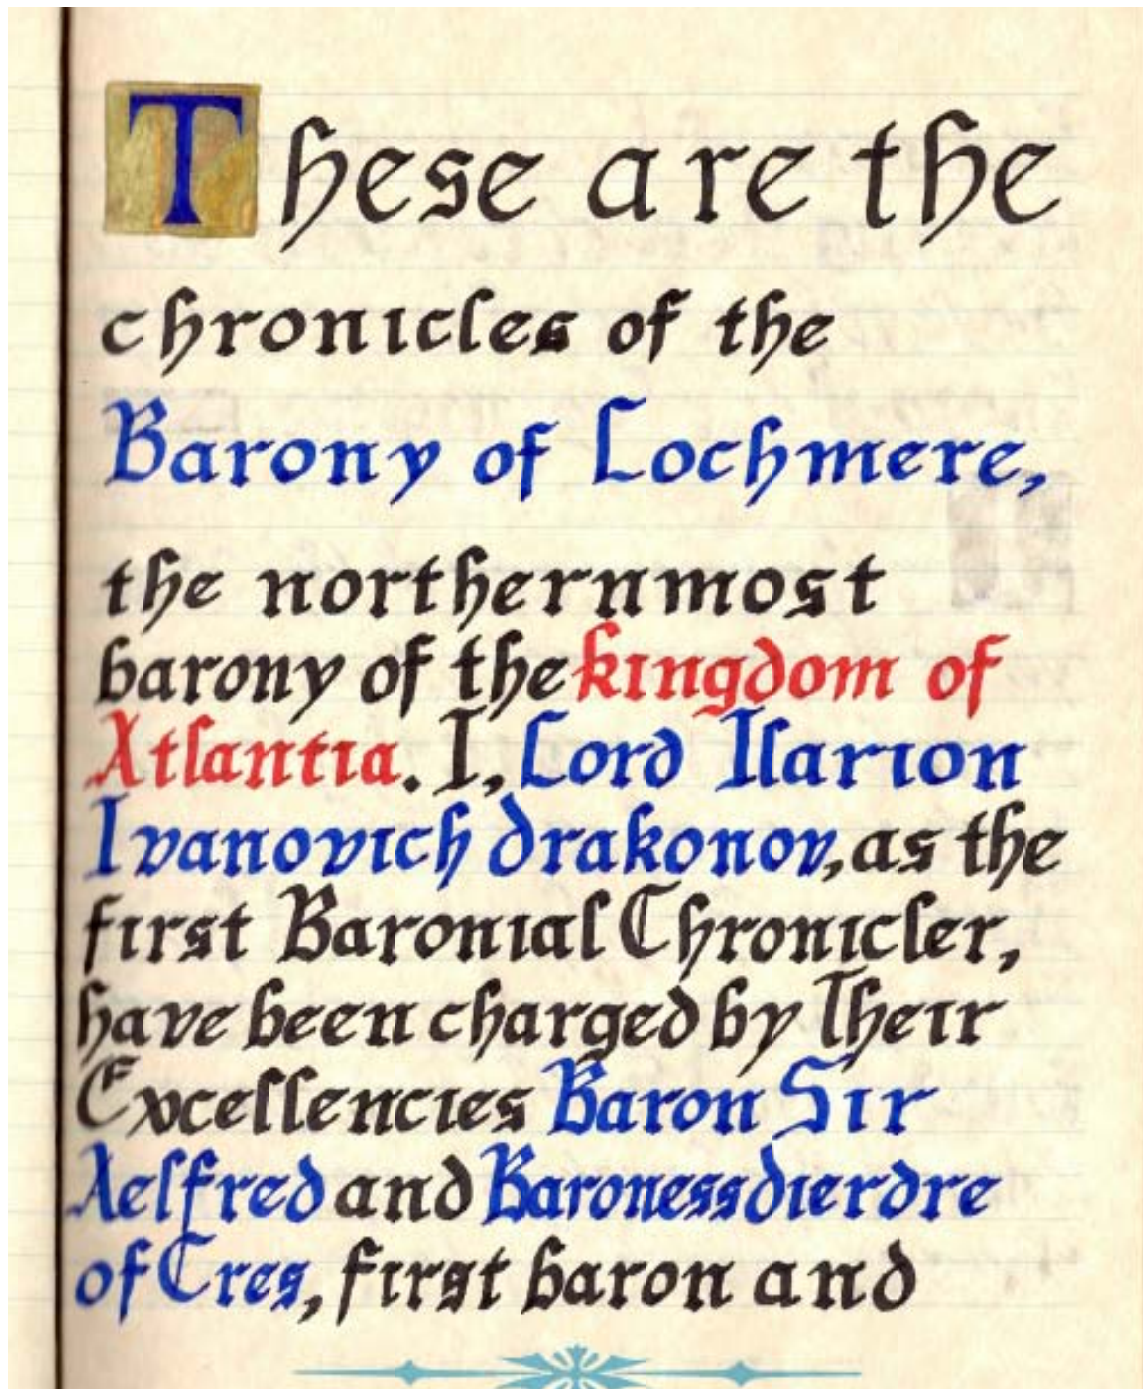 These are the
chronicles of the
Barony of Lochmere,
the northernmost
barony of the kingdom of
Atlantia. I, Lord Ilarion
Ivanovich drakonov, as the
first Baronial Chronicler,
have been charged by Their
Excellencies Baron Sir
Aelfred and Baroness dierdre
of Cres, first baron and